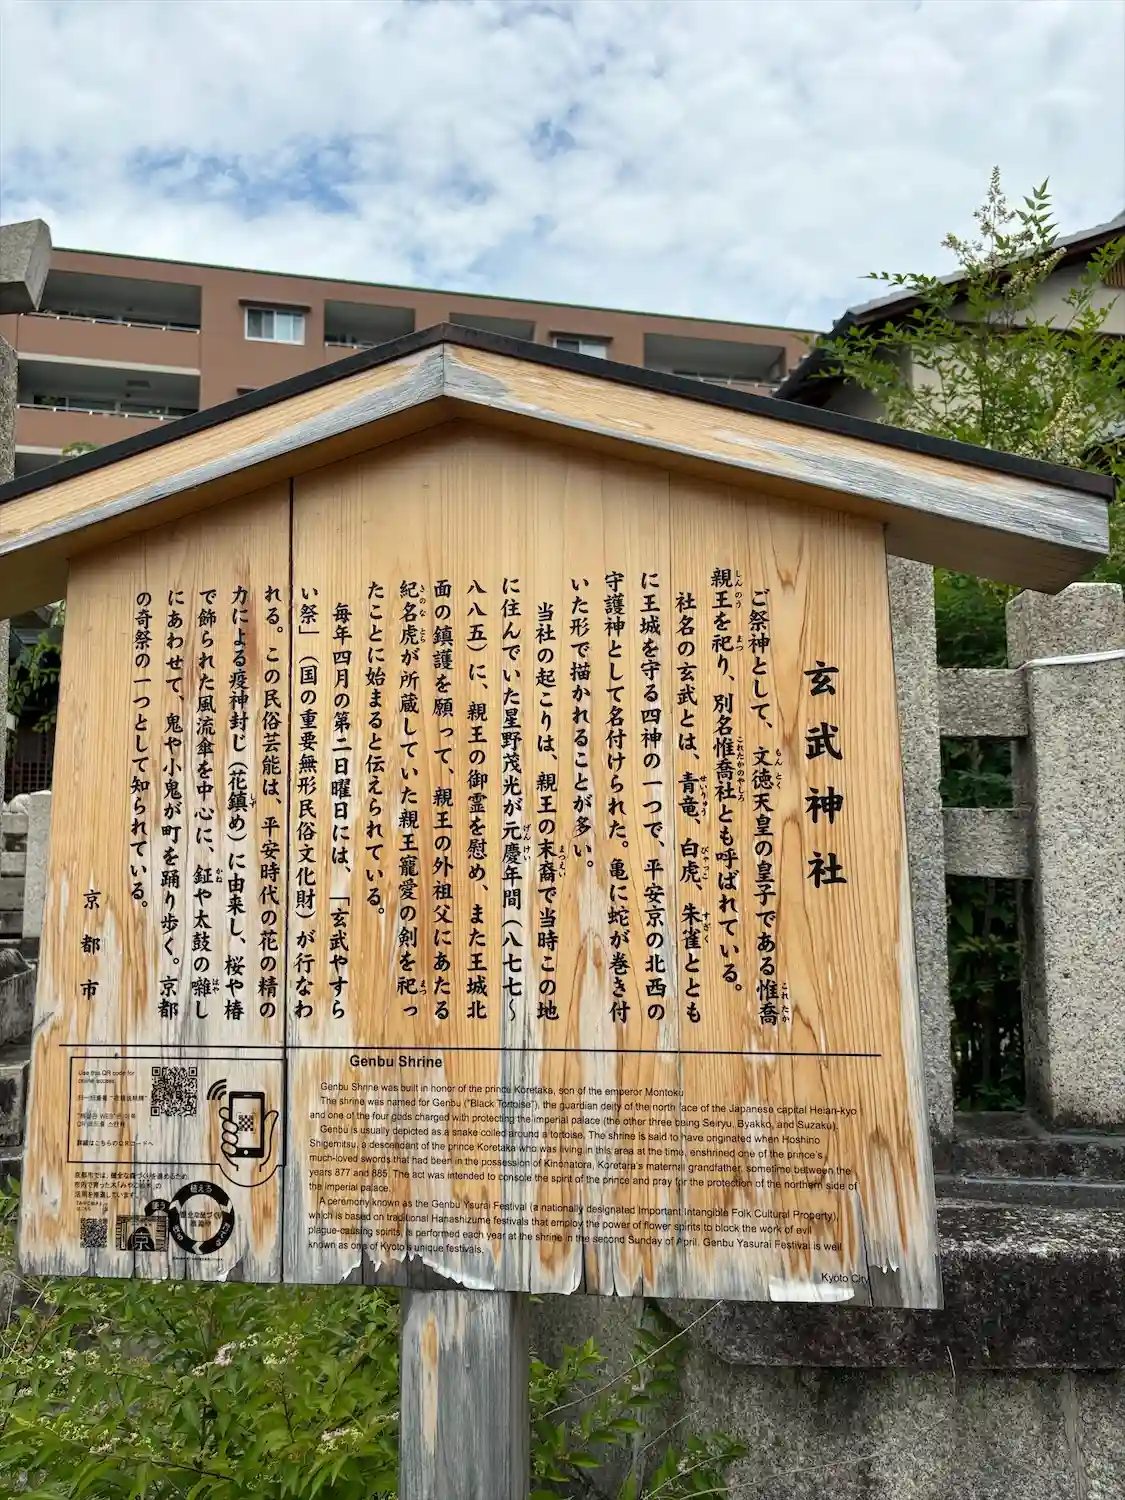 玄武神社
ご祭神として、文徳天皇の皇子である惟喬
親王を祀り、別名惟喬社とも呼ばれている。
社名の玄武とは、青竜、白虎、朱雀ととも
に王城を守る四神の一つで、平安京の北西の
守護神として名付けられた。亀に蛇が巻き付
いた形で描かれることが多い。
当社の起こりは、親王の末裔で当時この地
に住んでいた星野茂光が元慶年間(八七七~
八八五)に、親王の御霊を慰め、また王城北
面の鎮護を願って、親王の外祖父にあたる
紀名虎が所蔵していた親王寵愛の剣を祀っ
たことに始まると伝えられている。
毎年四月の第二日曜日には、「玄武やすら
い祭」(国の重要無形民俗文化財)が行なわ
れる。この民俗芸能は、平安時代の花の精の
力による疫神封じ(花鎮め)に由来し、桜や椿
で飾られた風流傘を中心に、鉦や太鼓の囃し
にあわせて、鬼や小鬼が町を踊り歩く。京都
の奇祭の一つとして知られている。
京都市
Genbu Shrine
Genbu Shrine was built in honor of the prince Koretaka, son of the emperor Montoku
The shrine was named for Genbu ("Black Tortoise"), the guardian deity of the north face of the Japanese capital Heian-kyo
and one of the four gods charged with protecting the imperial palace (the other three being Seiryu, Byakko, and Suzaku).
Genbu is usually depicted as a snake coiled around a tortoise. The shrine is said to have originated when Hoshino
Shigemitsu, a descendant of the prince Koretaka who was living in this area at the time, enshrined one of the prince's
much-loved swords that had been in the possession of Kinonatora, Koretara's maternal grandfather, sometime between the
years 877 and 885. The act was intended to console the spirit of the prince and pray for the protection of the northern side of
the imperial palace.
A ceremony known as the Genbu Ysurai Festival (a nationally designated Important Intangible Folk Cultural Property),
which is based on traditional Hanashizume festivals that employ the power of flower spirits to block the work of evil
plague-causing spirits, is performed each year at the shrine in the second Sunday of April. Genbu Yasurai Festival is well
known as one of Kyoto's unique festivals.
Kyoto City
Use this QR code for
詳細はこちらのQRコードへ
京都市では、健全な森づくりを進めるため
市内で育った木「みやこ杣木」の
活用を推進しています。
植える